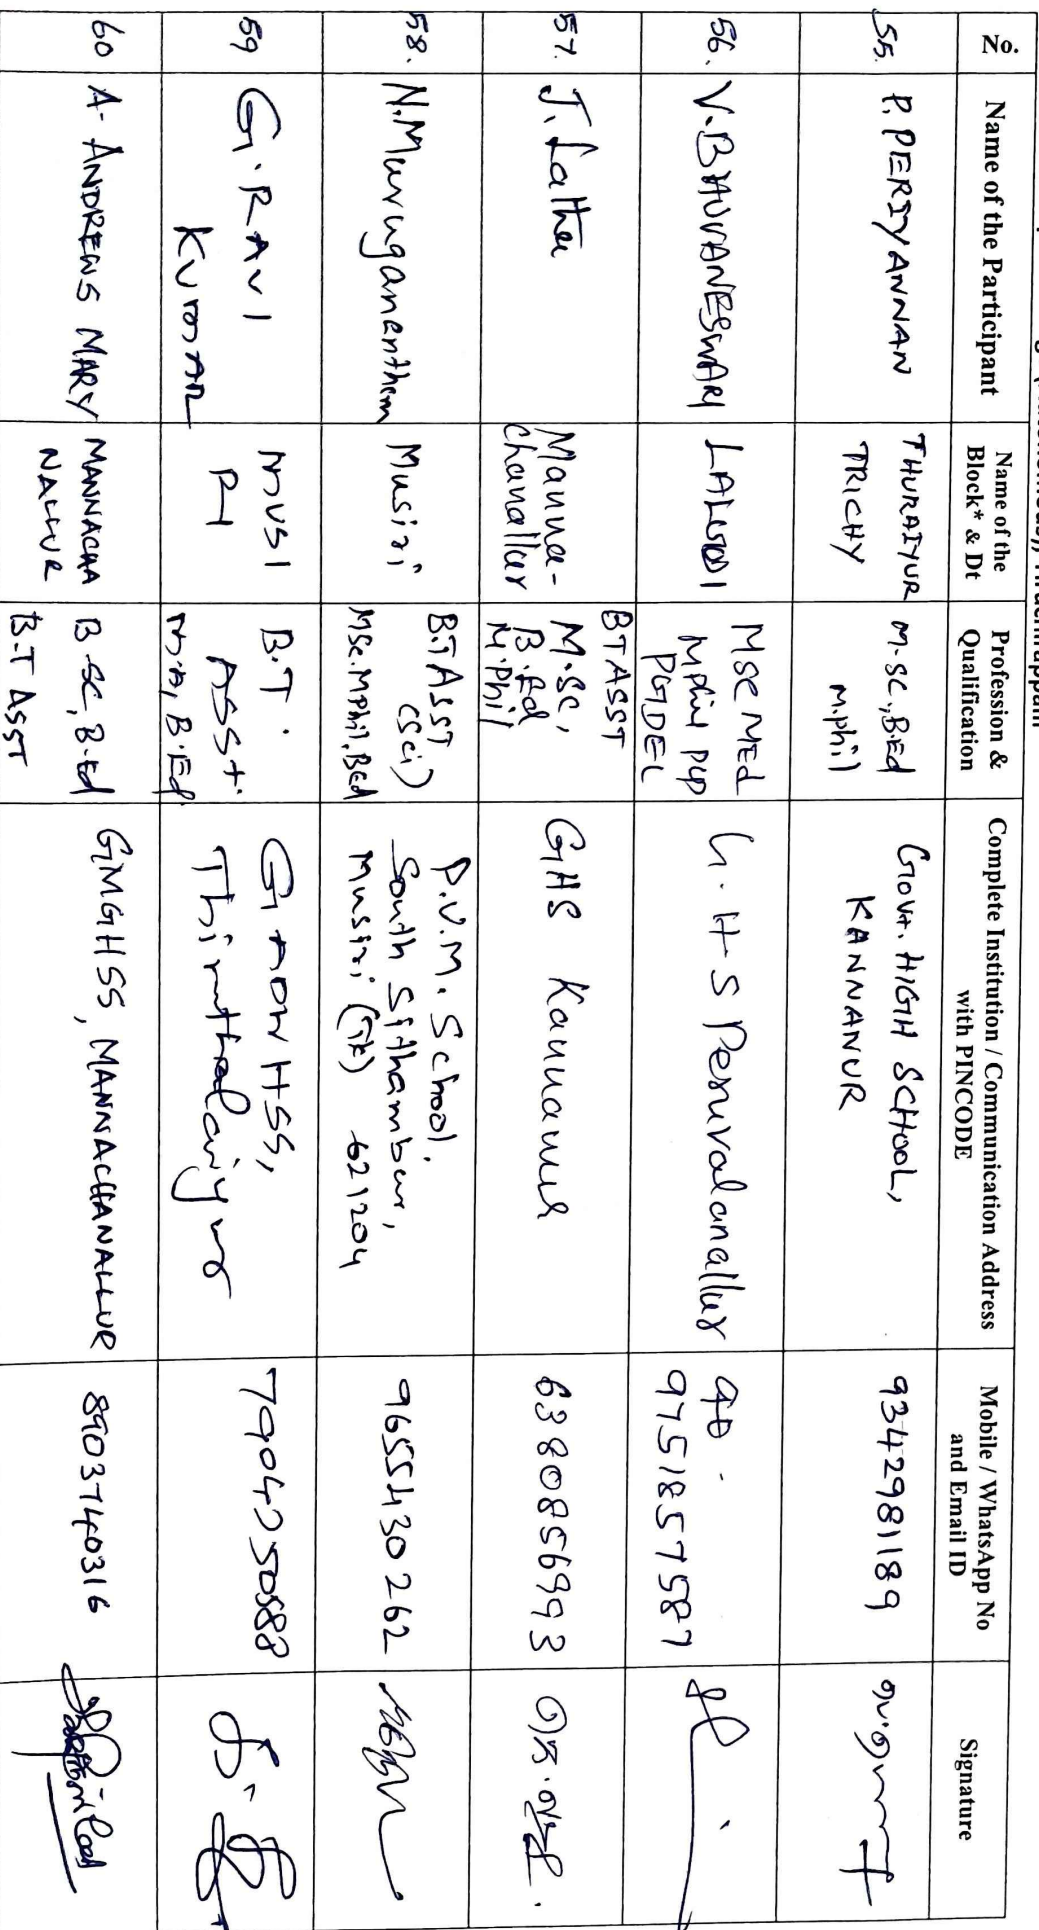 No.
Name of the Participant
Name of the
Block* & Dt
Profession &
Qualification
Complete Institution / Communication Address
with PINCODE
Mobile / WhatsApp No
and Email ID
Signature
55.
P. PERIYANNAN
THURAIYUR
TRICHY
M.SC.,B.Ed
M.phil
GOVt. HIGH SCHOOL,
KANNANUR
9342981189
56.
V.BHUVANESWARI
LALGUDI
MSC MEd
Mphil
PGDEL
G.H-S Peruvalanallur
9751857587
57.
J. Latha
Manna-
chanallur
BT ASST
M.Sc,
B.Ed
M.Phil
GHS Kannanur
6380856993
58.
N.Muruganantham
Musiri
B.T ASST
(Sci)
MSc.MPhil.BEd
P.U.M. School,
South Sithambur,
Musiri (TK) 621204
9655430262
59
G.RAVI
KUMAR
MUSI
RI
B.T.
ASSt.
M.A, B.Ed
HSS,
Thiruthalaiyur
60
A. ANDREWS MARY
MANNACHA
NALLUR
B.SC, B.Ed
B.T ASST
GMGHSS, MANNACHANALLUR
8903740316